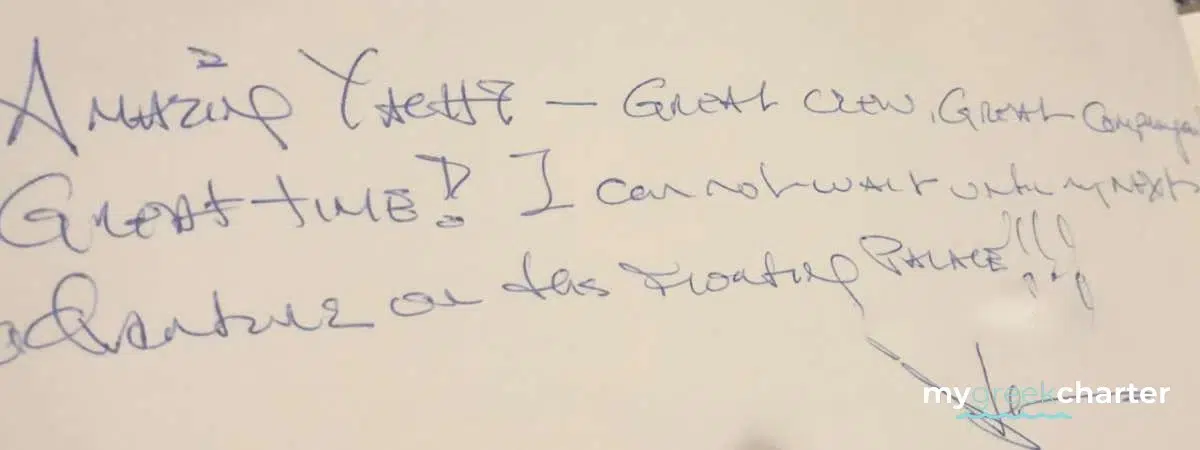 Amazing Yacht — Great crew, Great Company
Great time! I can not wait until my next
adventure on this Floating PALACE!!!
mygreekcharter